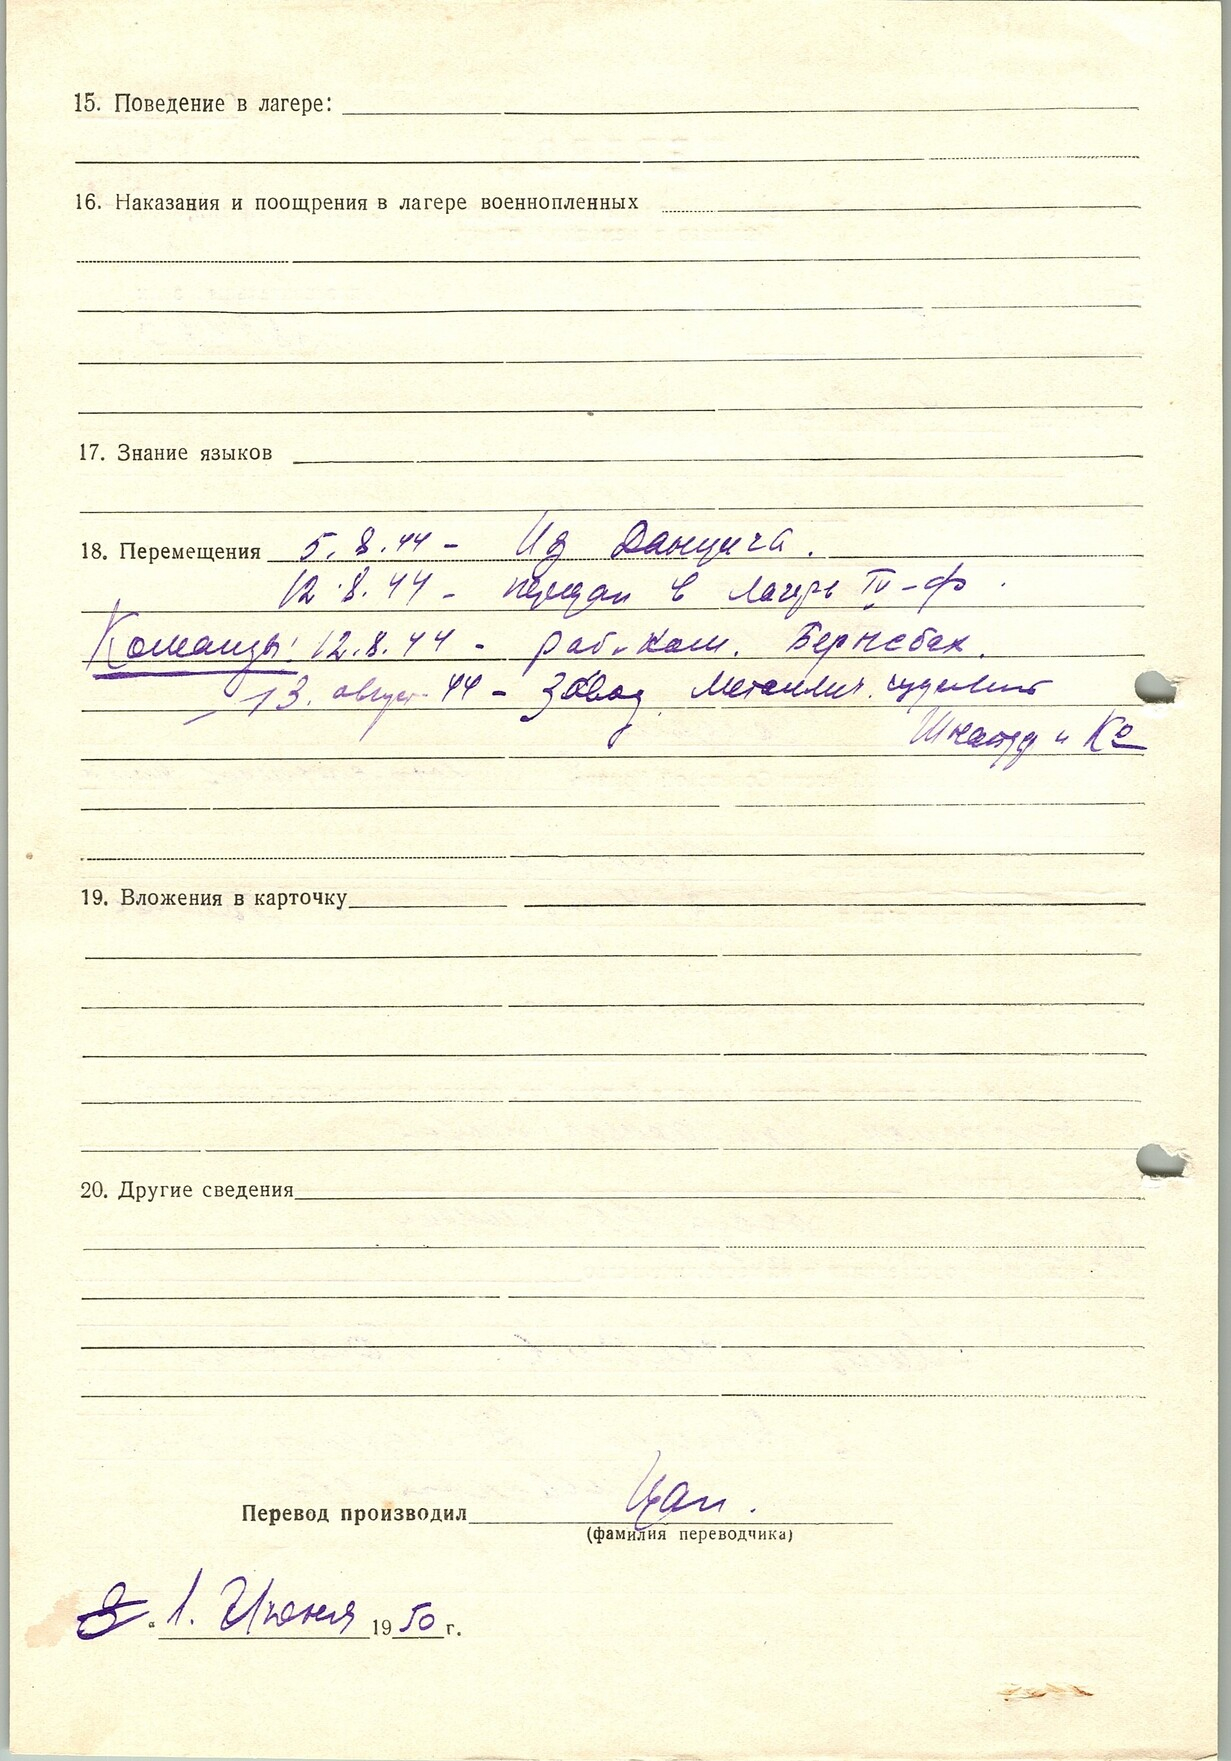 15. Поведение в лагере:
16. Наказания и поощрения в лагере военнопленных
17. Знание языков
18. Перемещения 5.8.44 – Из Данцига.
12.8.44 – передан в лагерь IV–ф.
Команды: 12.8.44 – раб. ком. Бернсбах.
– 13. август 44 – Завод металлич. изделий
и Ко
19. Вложения в карточку
20. Другие сведения
Перевод производил
(фамилия переводчика)
" 1. Июня 1950 г.